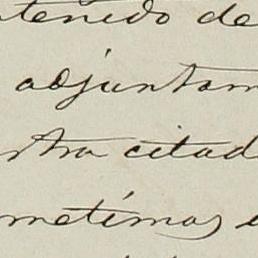 tenido de
adjuntam
stra citad
metimos e